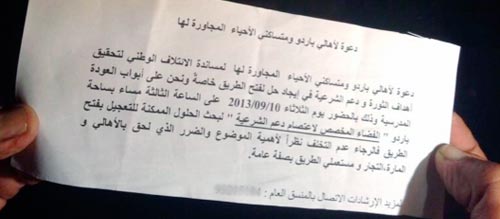 دعوة لأهالي باردو ومتساكني الأحياء المجاورة لها
دعوة لأهالي باردو ومتساكني الأحياء المجاورة لها لمساندة الائتلاف الوطني لتحقيق
أهداف الثورة و دعم الشرعية في إيجاد حل لفتح الطريق خاصة ونحن على أبواب العودة
المدرسية وذلك بالحضور يوم الثلاثاء 2013/09/10 على الساعة الثالثة مساء بساحة
باردو " الفضاء المخصص لاعتصام دعم الشرعية " لبحث الحلول الممكنة للتعجيل بفتح
الطريق فالرجاء عدم التخلف نظرا لأهمية الموضوع والضرر الذي لحق بالأهالي و
المارة،التجار و مستعملي الطريق بصفة عامة.
لمزيد الإرشادات الاتصال بالمنسق العام :